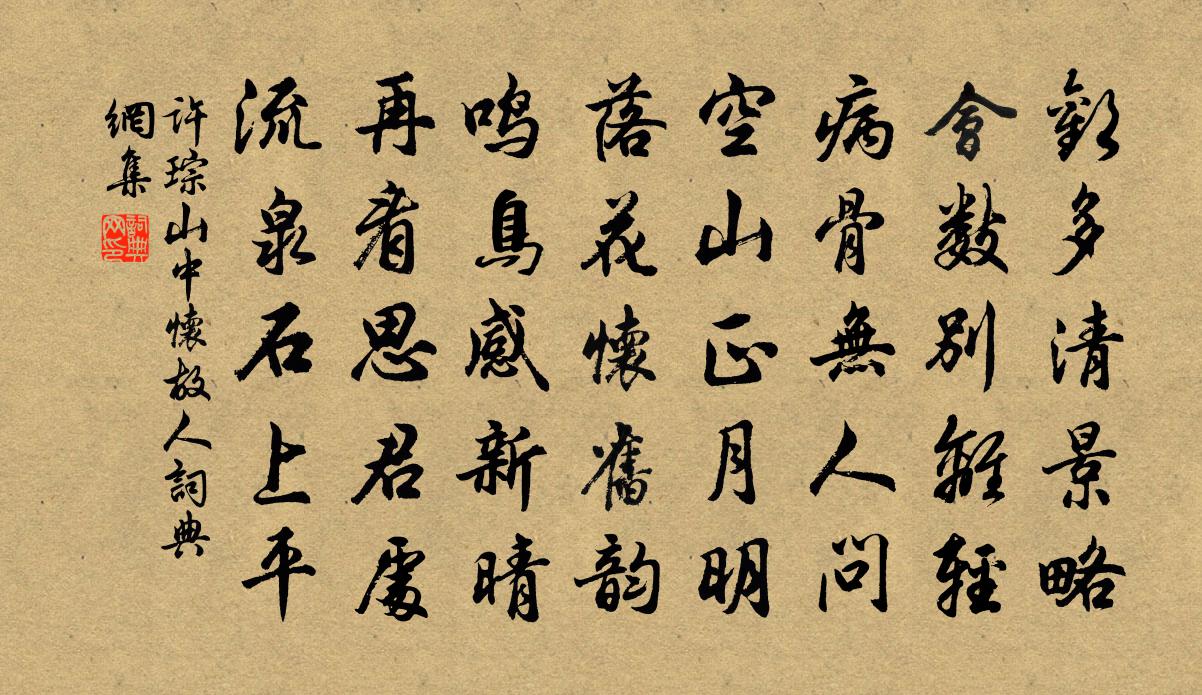 歡多清景略
會數別離輕
病骨無人問
空山正月明
落花懷舊韵
鸣鳥感新晴
再看思君處
流泉石上平
许琮山中懷故人詞典
網集
詞典网印